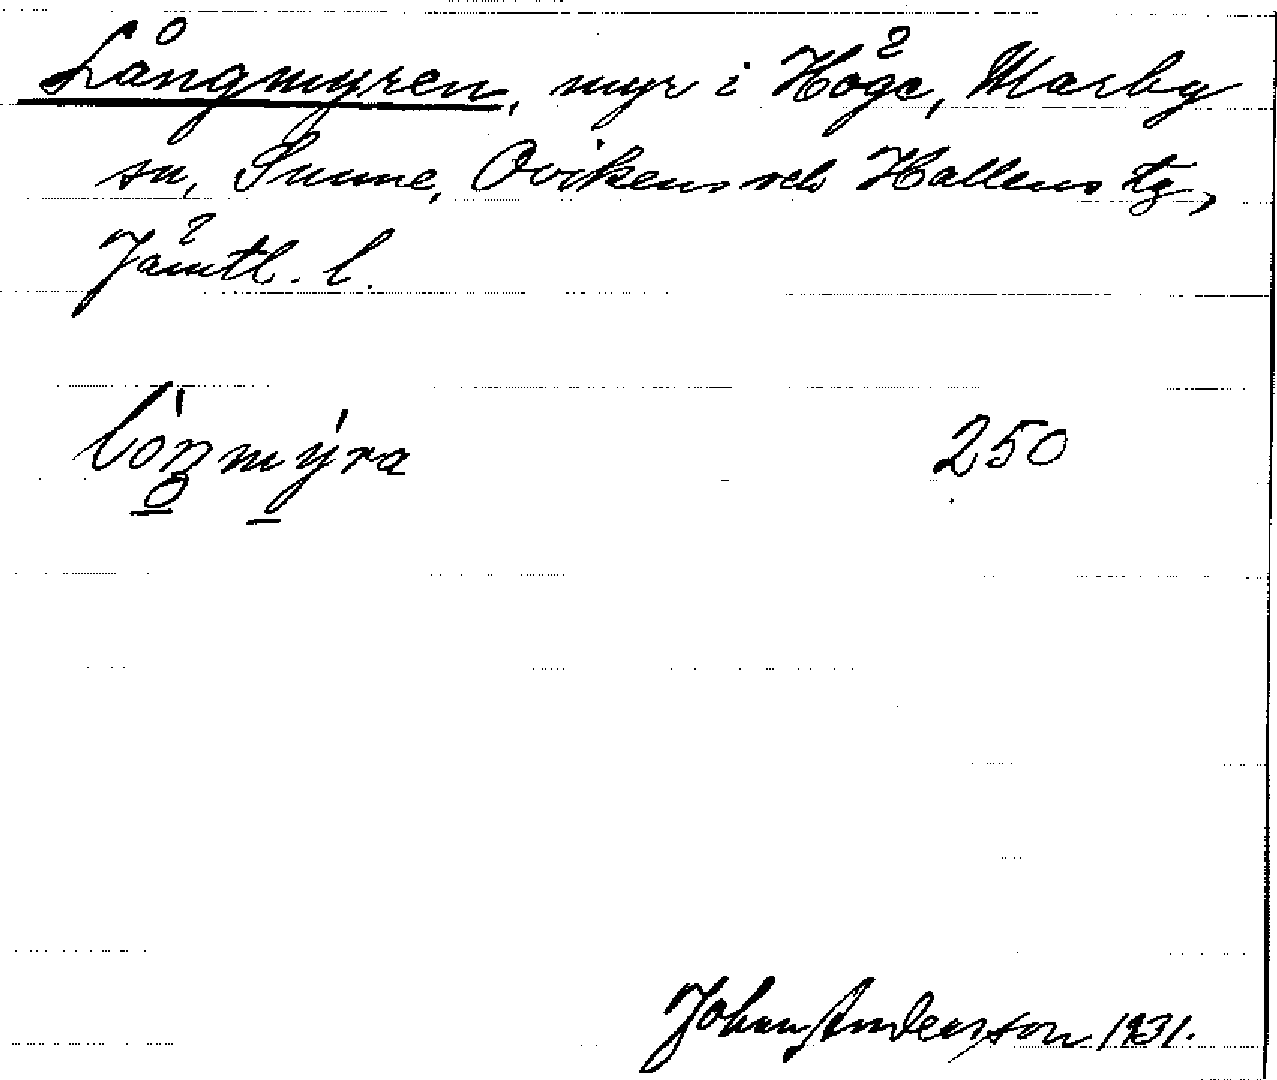 Långmyren, myr i Höge, Marby
sn, Sunne, Ovikens och Hallens tg,
Jämtl. l.
lòŋmýra 250
Johan Anderson 1931.